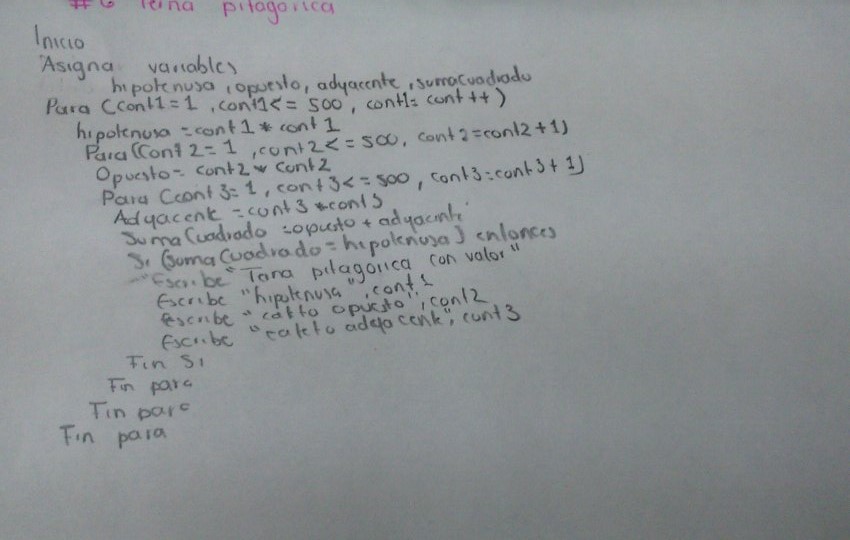 #6 Terna pitagorica
Inicio
Asigna variables
hipotenusa, opuesto, adyacente, sumacuadrado
Para (cont1=1, cont1<=500, cont1=cont++)
hipotenusa=cont1*cont1
Para(cont2=1, cont2<=500, cont2=cont2+1)
Opuesto=cont2*cont2
Para (cont3=1, cont3<=500, cont3=cont3+1)
Adyacente=cont3*cont3
SumaCuadrado=opuesto+adyacente
Si (SumaCuadrado=hipotenusa) entonces
Escribe "Terna pitagorica con valor"
Escribe "hipotenusa", cont1
Escribe "catto opuesto", cont2
Escribe "cateto", cont3
Fin Si
Fin para
Fin para
Fin para